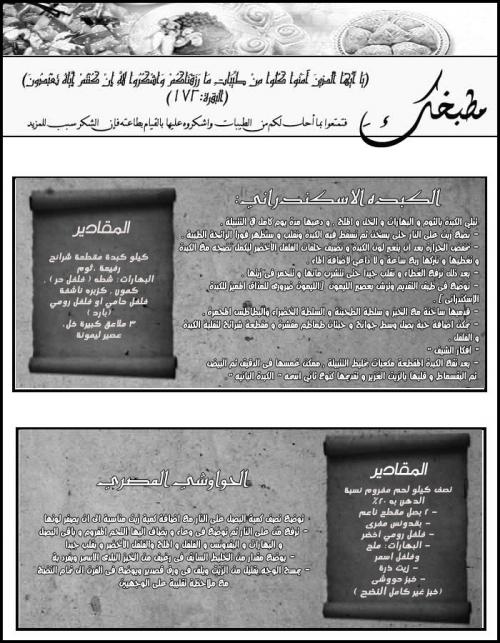 (يَا أَيُّهَا الَّذِينَ آمَنُوا كُلُوا مِنْ طَيِّبَاتِ مَا رَزَقْنَاكُمْ وَاشْكُرُوا لِلَّهِ إِنْ كُنْتُمْ إِيَّاهُ تَعْبُدُونَ)
(البقرة:١٧٢)
فتمتعوا بما أحل لكم من الطيبات واشكروه عليها بالقيام بطاعته فإن الشكر سبب للمزيد
مطبخك
الكبده الاسكندراني:
تبلي الكبدة بالثوم و البهارات و الخل و الملح , و دعيها مدة يوم كامل في التتبيلة .
- نضع زيت على النار حتى يسخن ثم نسقط فيه الكبدة ونقلب و ستظهر فورا الرائحة الطيبة .
- نخفض الحرارة بعد ان يتغير لون الكبدة و نضيف حلقات الفلفل الأخضر ليكمل نضجه مع الكبدة
و نغطيها و نتركها ربع ساعة و لا داعي لاضافة الماء
- بعد ذلك نرفع الغطاء و نقلب جيدا حتى تتشرب مائها و تتحمر في زيتها .
- توضع في طبق التقديم ونرش بعصير الليمون (الليمون ضروري للمذاق المميز للكبدة
الإسكندراني ) .
- قدميها ساخنة مع الخبز و سلطة الطحينة و السلطة الخضراء والبطاطس المحمرة .
- يمكنك اضافة حبة بصل وسط جوانح و حبات طماطم مقشرة و مقطعة شرائح لتقلية الكبدة
و الفلفل .
- افكار الشيف "
- بعد نقع الكبدة المقطعة مكعبات بخليط التتبيلة , ممكن غمسها في الدقيق ثم البيض
ثم البقسماط و قليها بالزيت الغزير و تقدمها كنوع تاني اسمه " الكبدة البانيه "
المقادير
كيلو كبدة مقطعة شرائح
رفيعة .ثوم
البهارات: شطه ( فلفل حر ) .
كمون . كزبره ناشفة
فلفل حامي او فلفل رومي
(بارد )
٣ ملاعق كبيرة خل.
عصير ليمونة
الحواوشي المصري
نوضع نصف كمية البصل على النار مع اضافة كمية زيت مناسبة الى ان يصفر لونها
- نرفع من على النار ثم نوضع في وعاء و يضاف اليها اللحم المفروم و باقي البصل
و البهارات و البقدونس و الفلفل و الملح والفلفل الأخضر و نقلب جيدا
- يوضع مقدار من الخليط السابق في رغيف من الخبز البلدي الأسمر ويفرد به
- يمسح الوجه بقليل من الزيت ويلف في ورق قصدير ويوضع في الفرن الى تمام النضج
مع ملاحظة تقليبة على الوجهين
المقادير
نصف كيلو لحم مفروم نسبة
الدهن به ٢٠%
- ٢ بصل مقطع ناعم
- بقدونس مفرى
- فلفل رومي اخضر
- البهارات: ملح
و فلفل اسمر
- زيت ذرة
- خبز حووشى
(خبز غير كامل النضج )